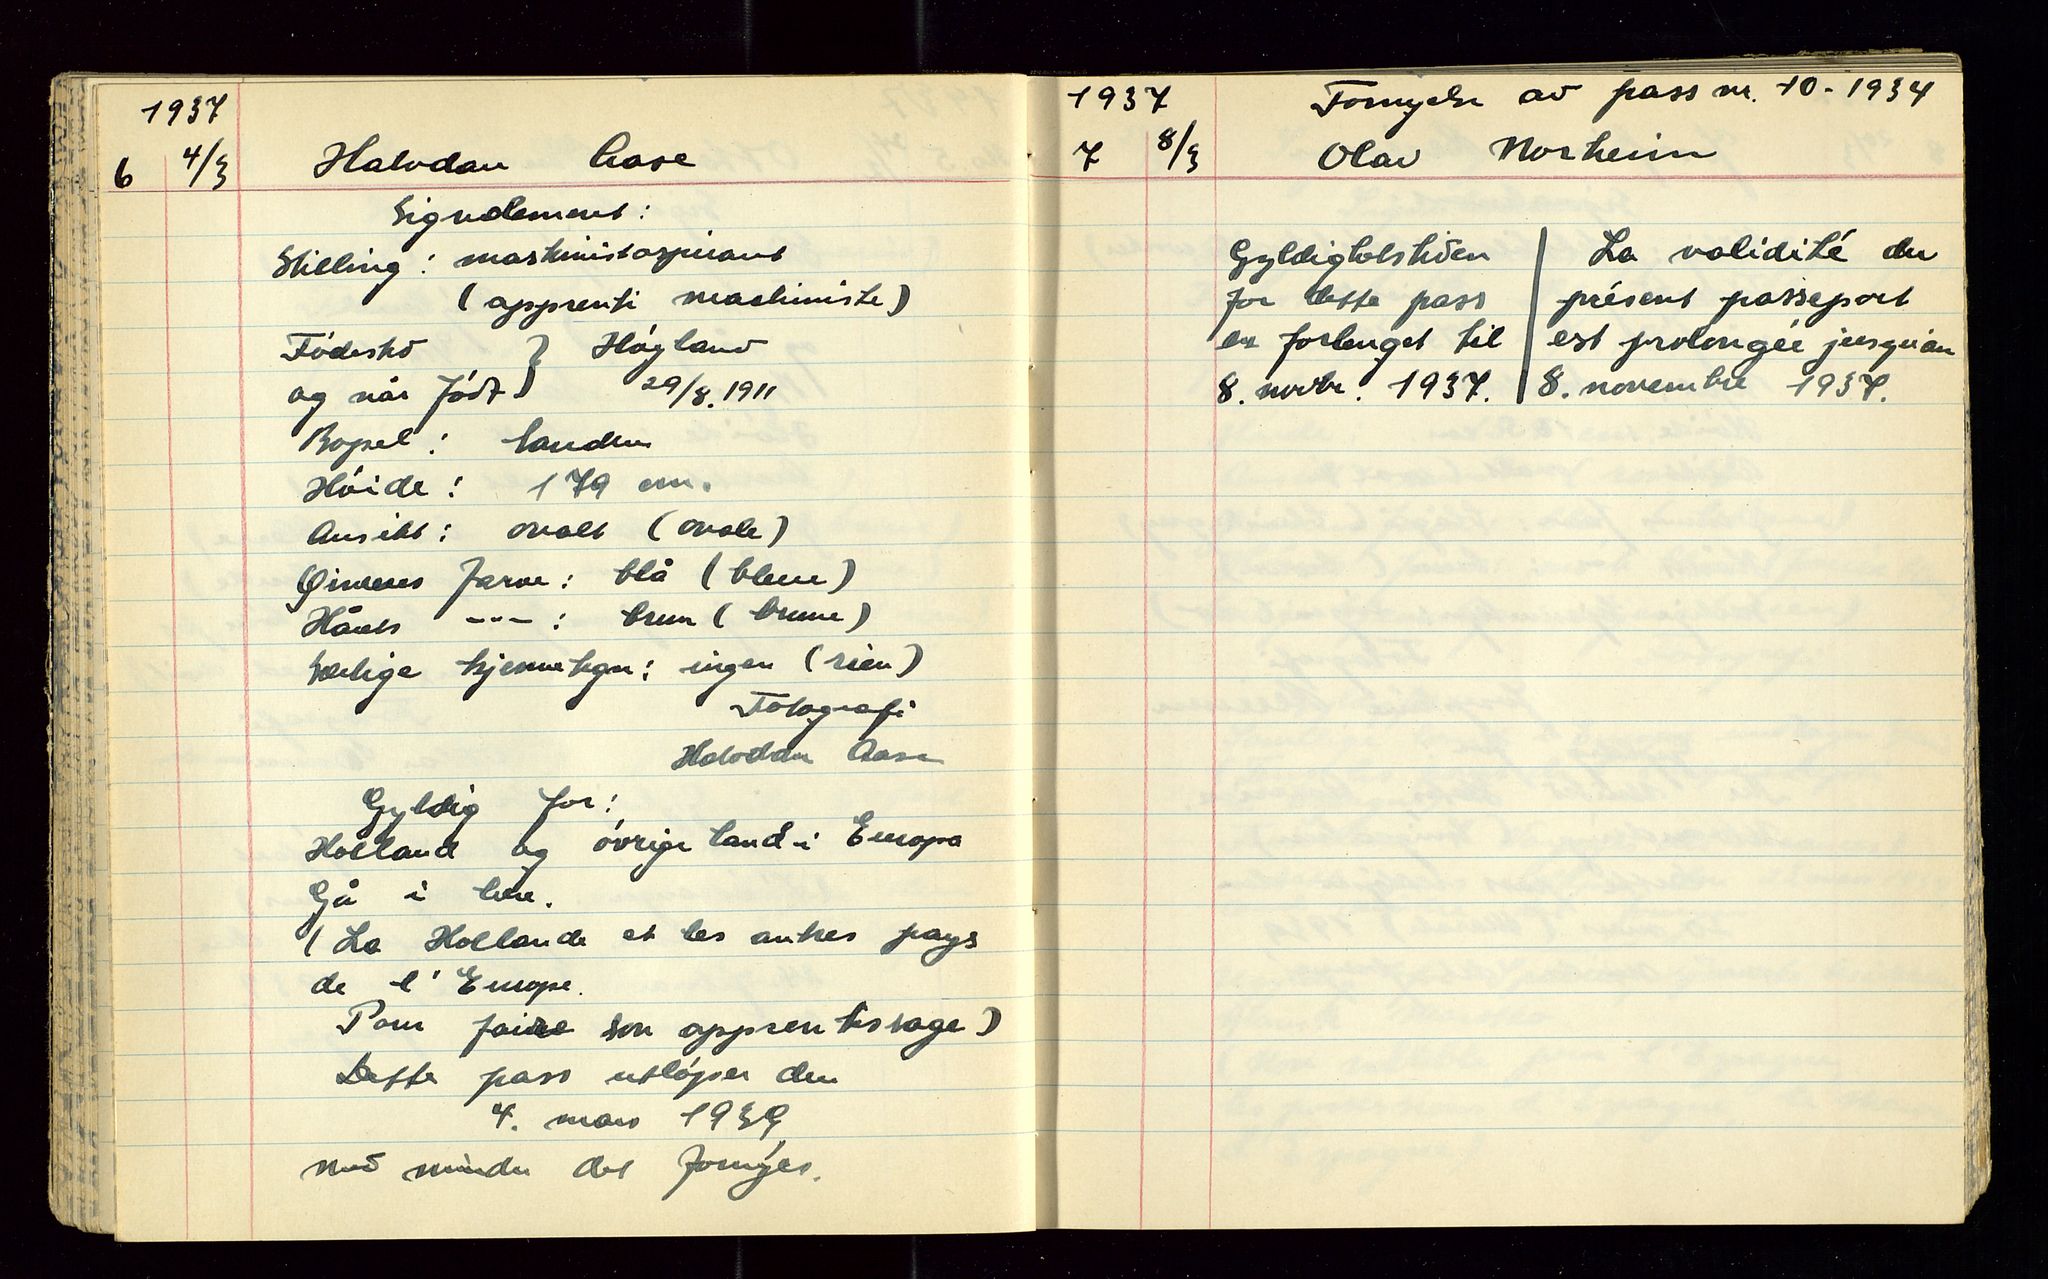 1937
6 4/3 Halvdan Aase
Signalement:
Stilling: maskinistaspirant
(apprenti machiniste)
Fødested } Høyland
og når født } 29/8. 1911
Bopel: Sandnes
Høide: 179 cm.
Ansikt: ovalt (ovale)
Øinenes farve: blå (bleue)
Hårets --- : brun (brune)
Særlige kjennetegn: ingen (rien)
Fotografi
Halvdan Aase
Gyldig for:
Holland og øvrige land i Europa
Gå i lære.
(La Hollande et les autres pays
de l'Europe.
Pour faire son apprentissage)
Dette pass utløper den
4. mars 1939
med mindre det fornyes.
1937 Fornyelse av pass nr. 10-1934
7 8/3 Olav Norheim
Gyldighetstiden
for dette pass
er forlenget til
8. novbr. 1937.
La validité du
présent passeport
est prolongée jusqu'au
8. novembre 1937.